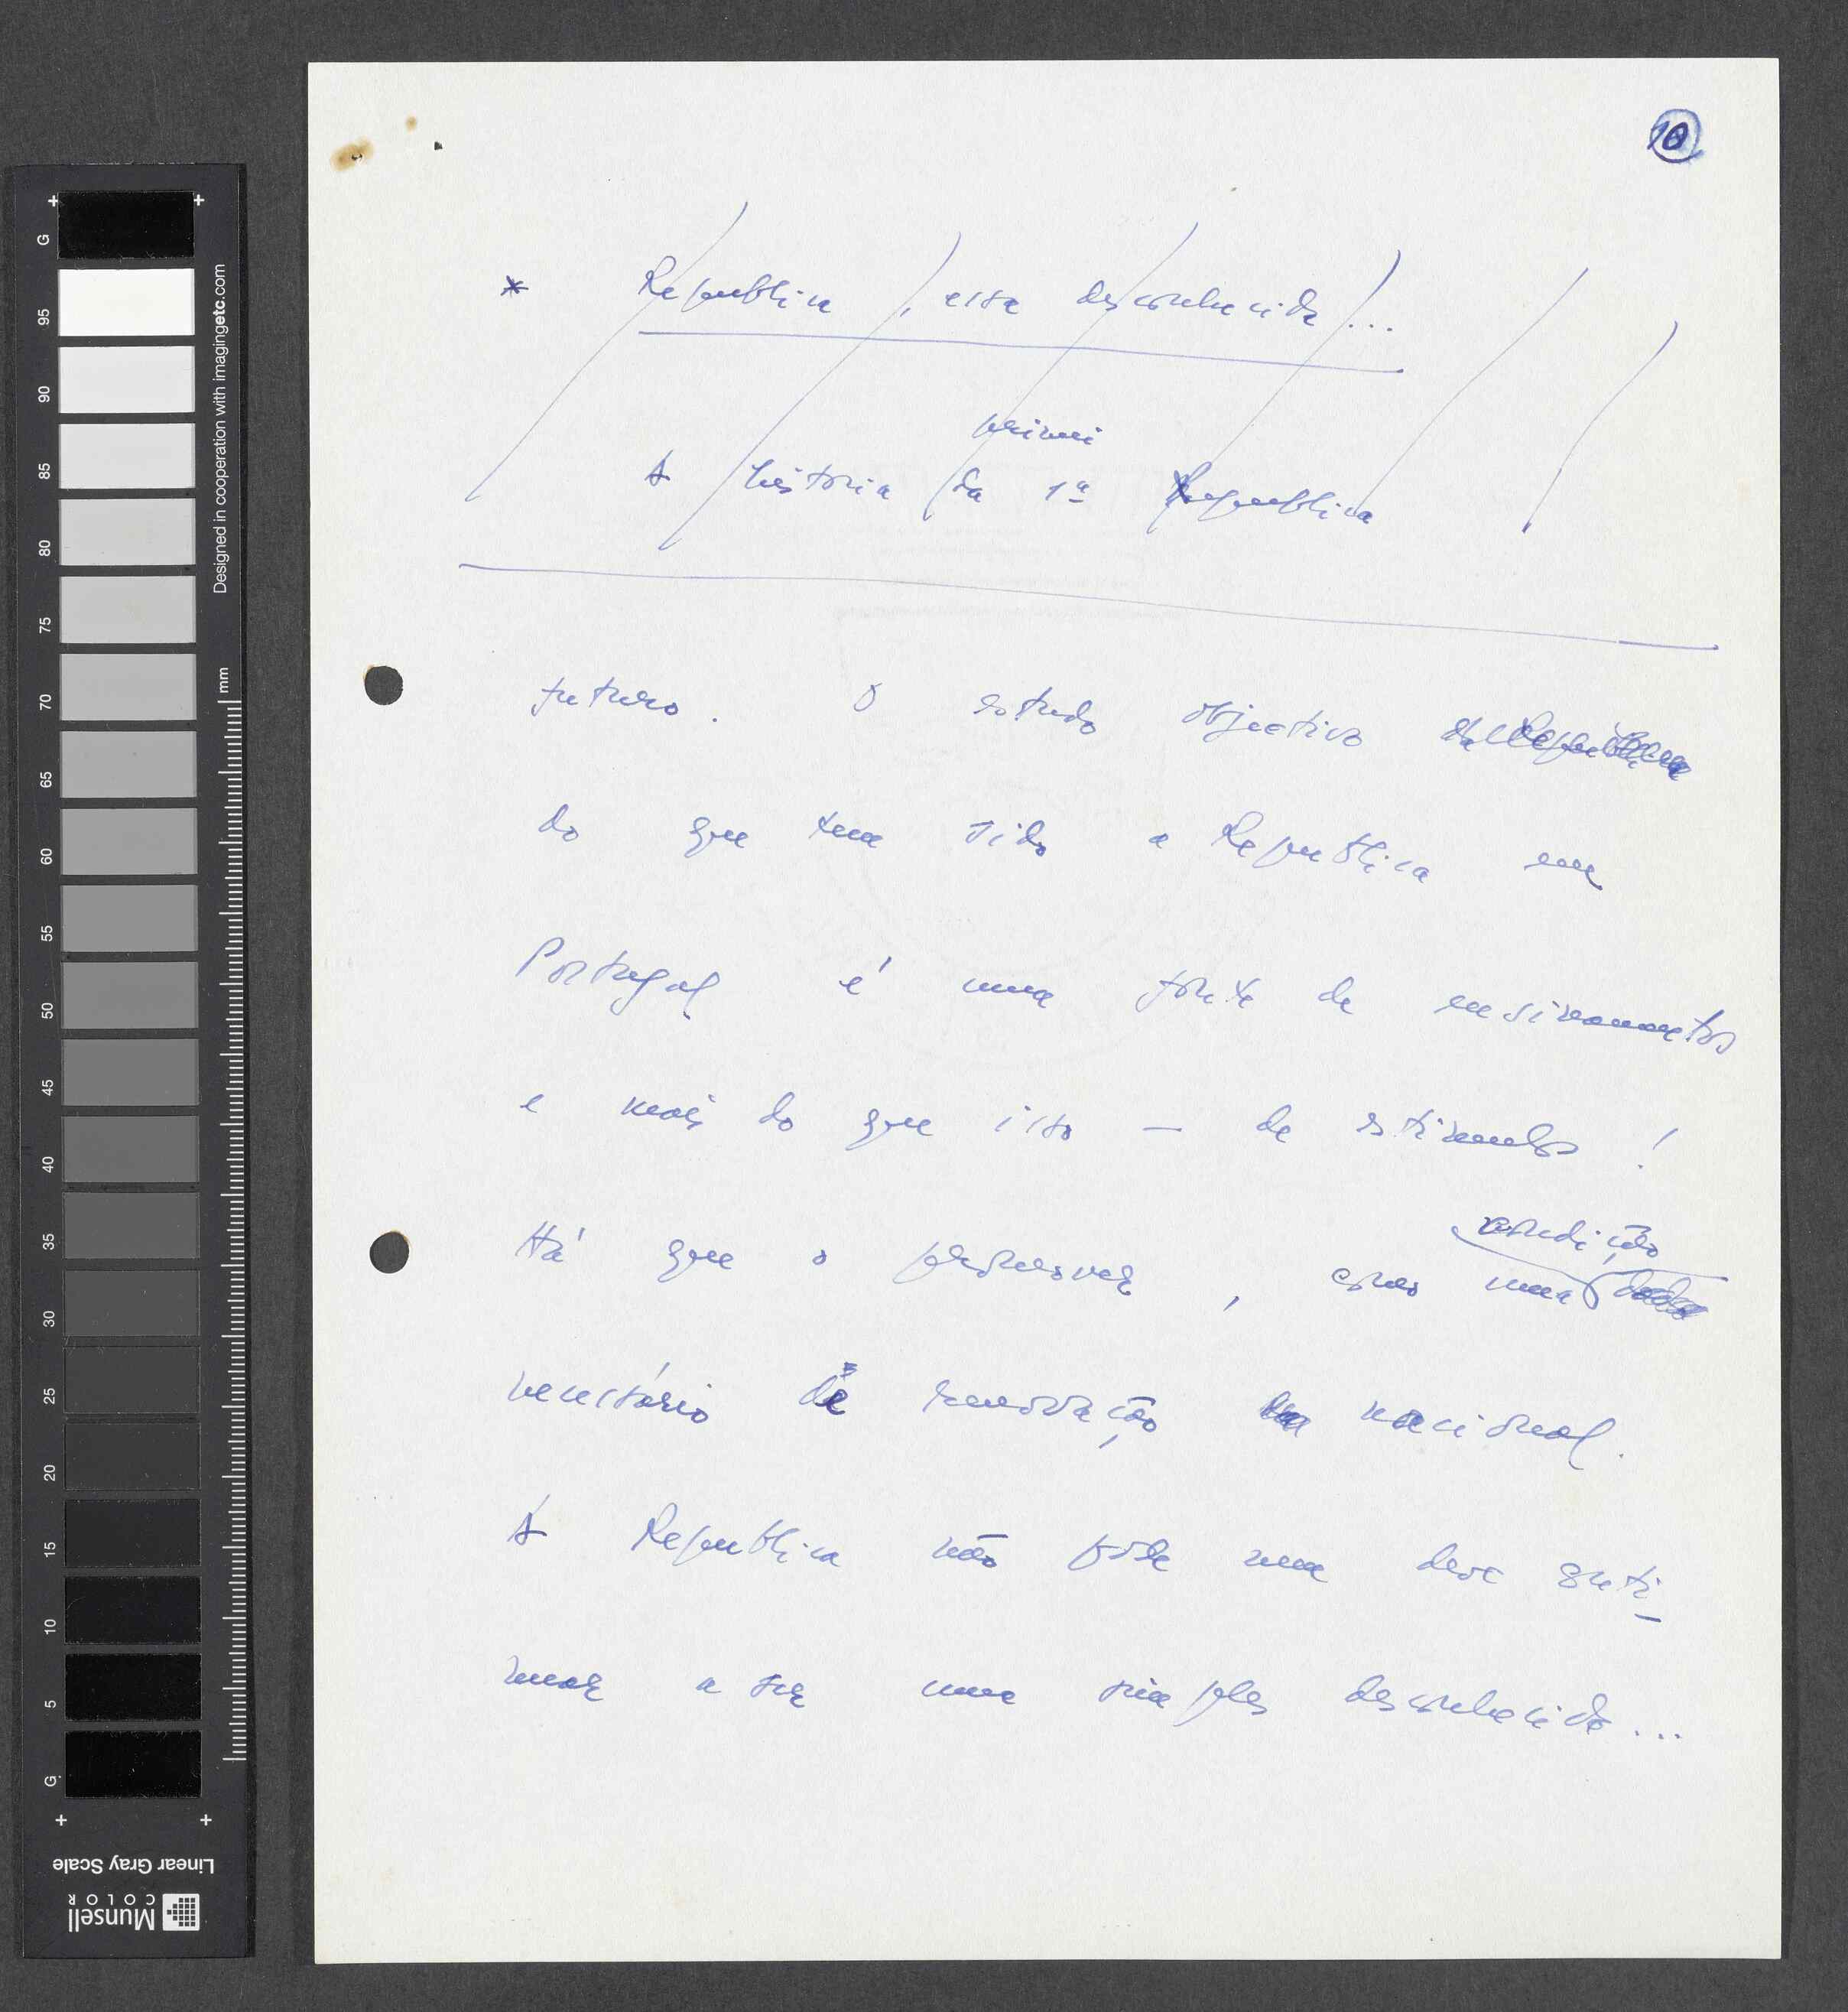 10
* Republica, essa desconhecida...
primei
A história da 1ª Republica
futuro. O estudo objectivo da Republica
do que tem sido a Republica em
Portugal é uma fonte de ensinamentos
e mais do que isso — de estimulos!
condição
Há que o promover, como uma
necessário de renovação nacional.
A Republica não pode nem deve conti-
nuar a ser uma simples desconhecida...
G
95
90
85
80
75
70
65
60
55
50
45
40
35
30
25
20
15
10
5
G
mm
Designed in cooperation with imagingetc.com
Linear Gray Scale
Munsell
COLOR